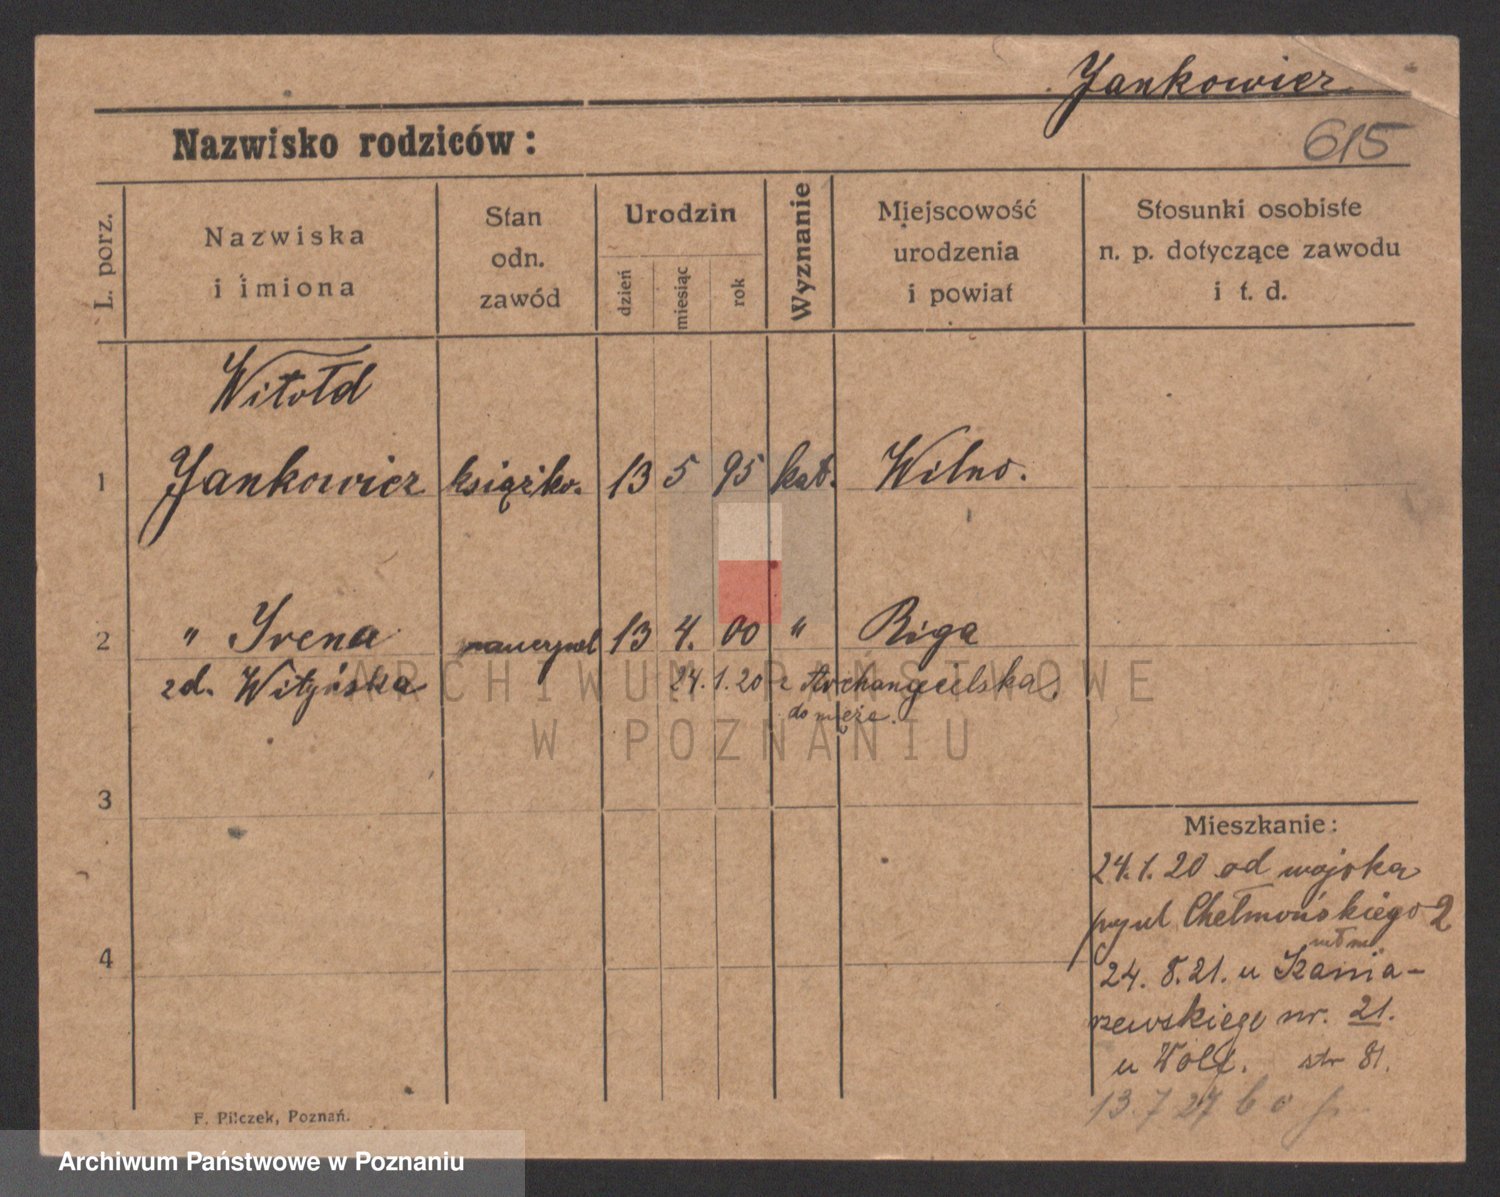 Jankowicz
Nazwisko rodziców:
615
L. porz.
Nazwiska
i imiona
Stan
odn.
zawód
Urodzin
dzień
miesiąc
rok
Wyznanie
Miejscowość
urodzenia
i powiat
Stosunki osobiste
n. p. dotyczące zawodu
i t. d.
Witołd
1 Jankowicz książko. 13 5 95 kat. Wilno.
2 " Irena 13 4. 00 " Riga
zd. 24.1.20 z Archangielska
do męża.
3
4
Mieszkanie:
24.1.20 od wojska
Chełmońskiego 2
24. 8. 21. u Szania-
rzewskiego nr. 21.
u Wolf. str 81.
13 7 27
F. Pilczek, Poznań.
ARCHIWUM PAŃSTWOWE
W POZNANIU
Archiwum Państwowe w Poznaniu